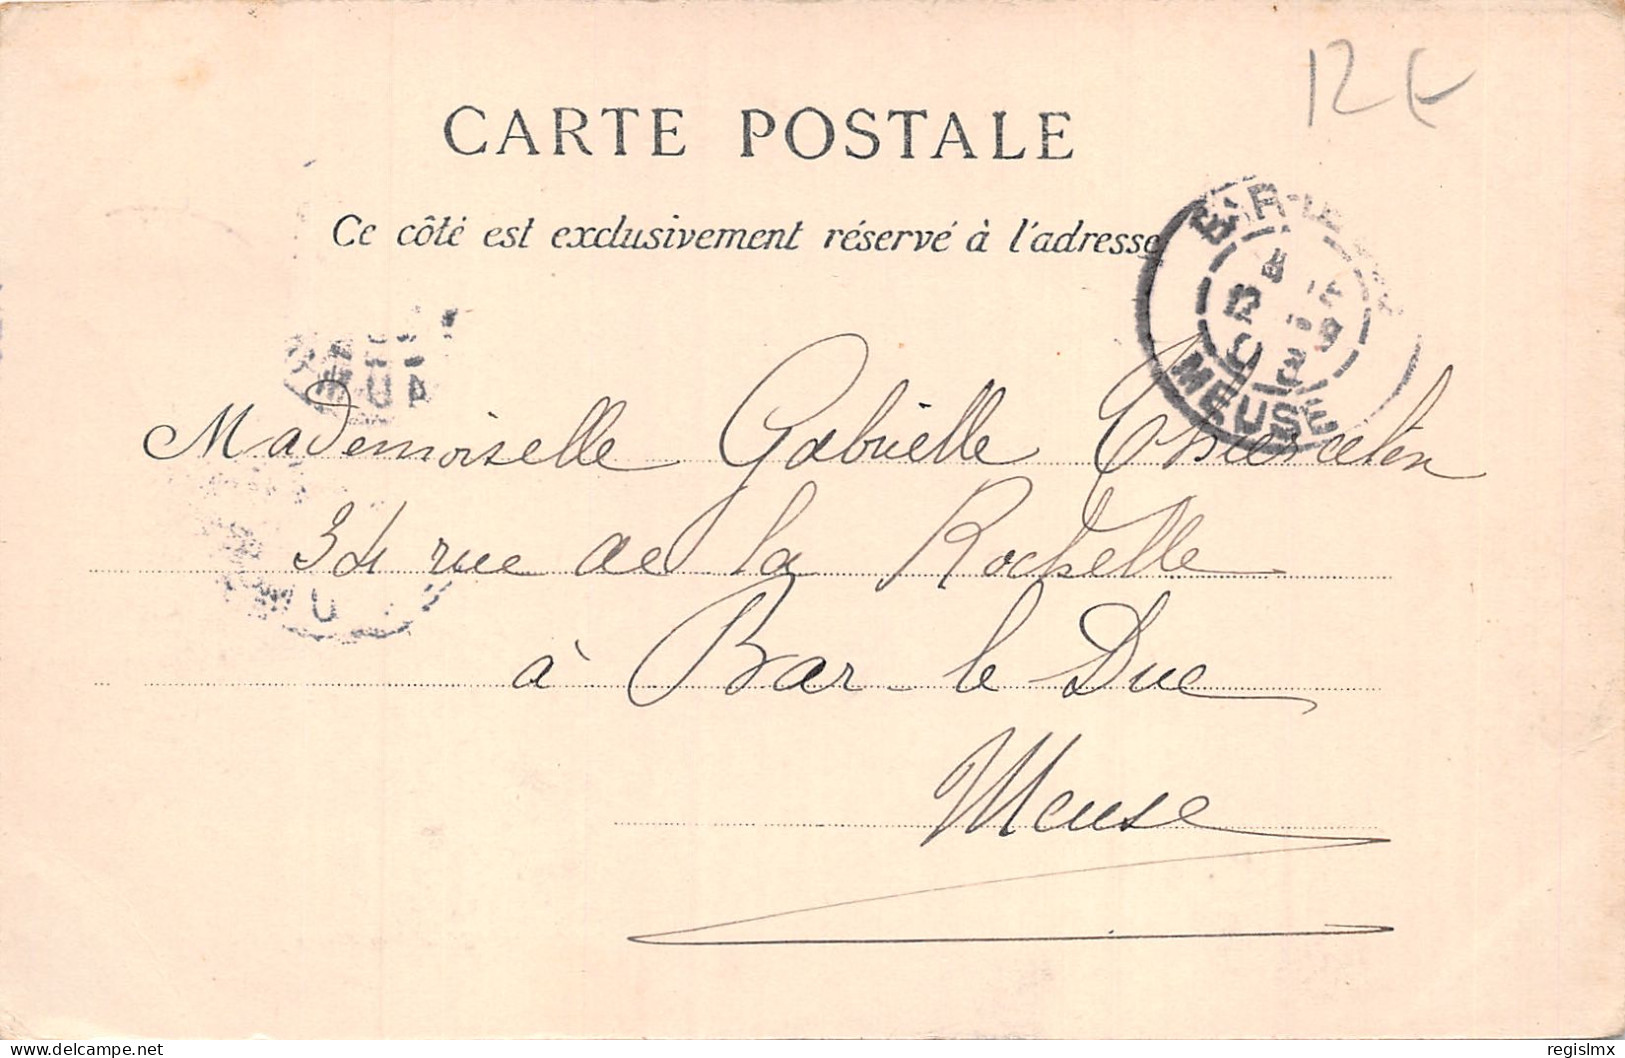 12€
CARTE POSTALE
Ce côté est exclusivement réservé à l'adresse
BAR-LE
MEUSE
Mademoiselle Gabrielle
34 rue de la Rochelle
à Bar-le-Duc
Meuse
regislmx
delcampe.net